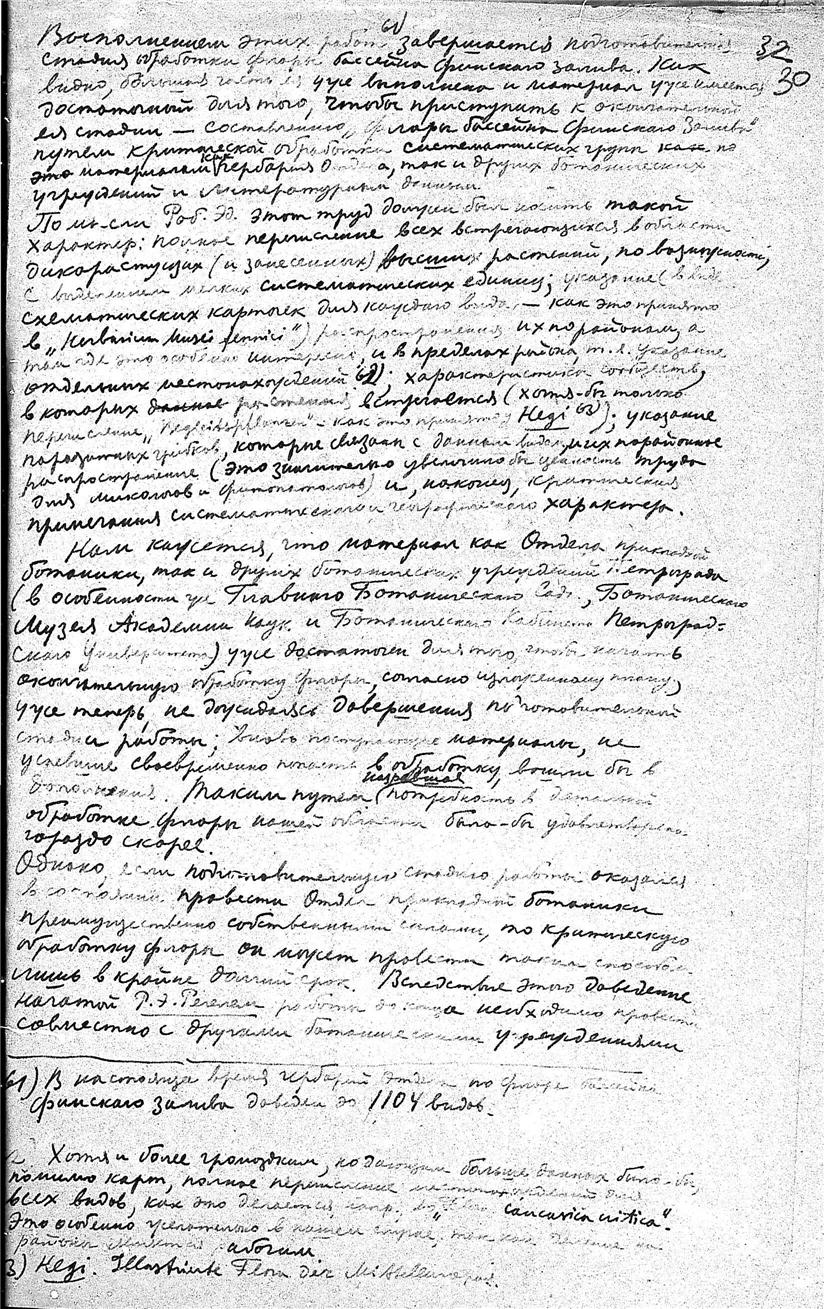 32
30
61)
Восполнением этих работ завершается подготовительная
стадия обработки флоры бассейна Финскаго залива. Как
видно, большая часть ея уже выполнена и материал уже имеется
достаточный для того, чтобы приступить к окончательной
ея стадии — составлению „Флоры бассейна Финскаго Залива"
путем критической обработки систематических групп как по
это материалам как Гербария Отдела, так и других ботанических
учреждений и литературным данным.
По мысли Роб. Эд. этот труд должен был носить такой
характер: полное перечисление всех встречающихся в области
дикорастущих (и занесенных) высших растений, по возможности,
с выделением мелких систематических единиц; указание (в виде
схематических карточек для каждаго вида, — как это принято
в „Herbarium Musei fennici") распространения их по районам, а
там где это особенно интересно, и в пределах района, т.е. указание
отдельных местонахождений 62); характеристика сообществ,
в которых данное растения встречается (хотя-бы только
перечисление „Begleitpflanzen" - как это принято у Hegi 63)); указание
паразитных грибков, которые связаны с данным видом, и их порайонное
распространение (это значительно увеличило бы ценность труда
для микологов и фитопатологов) и, наконец, критическия
примечания систематическаго и географическаго характера.
Нам кажется, что материал как Отдела прикладной
ботаники, так и других ботанических учреждений Петрограда
(в особенности же Главнаго Ботаническаго Сада, Ботаническаго
Музея Академии Наук и Ботаническаго Кабинета Петроград-
скаго Университета) уже достаточен для того, чтобы начать
окончательную обработку флоры, согласно изложенному плану,
уже теперь, не дожидаясь довершения подготовительной
стадии работы; вновь поступающие материалы, не
успевшие своевременно попасть в обработку, вошли бы в
дополнения. Таким путем назревшая потребность в детальной
обработке флоры нашей области была-бы удовлетворена
гораздо скорее.
Однако, если подготовительную стадию работы оказался
в состоянии провести Отдел прикладной ботаники
преимущественно собственными силами, то критическую
обработку флоры он может провести таким способом
лишь в крайне долгий срок. Вследствие этого доведение
начатой Р.Э. Регелем работы до конца необходимо провести
совместно с другими ботаническими учреждениями
61) В настоящее время гербарий Отдела по флоре бассейна
Финскаго залива доведен до 1104 видов.
Хотя и более громоздким, но дающим больше данных было-бы,
помимо карт, полное перечисление местонахождений для
всех видов, как это делается напр. во „Flora caucasica critica".
Это особенно желательно в нашем случае, так как
районы
3) Hegi. Illustrierte Flora der Mitteleuropas.